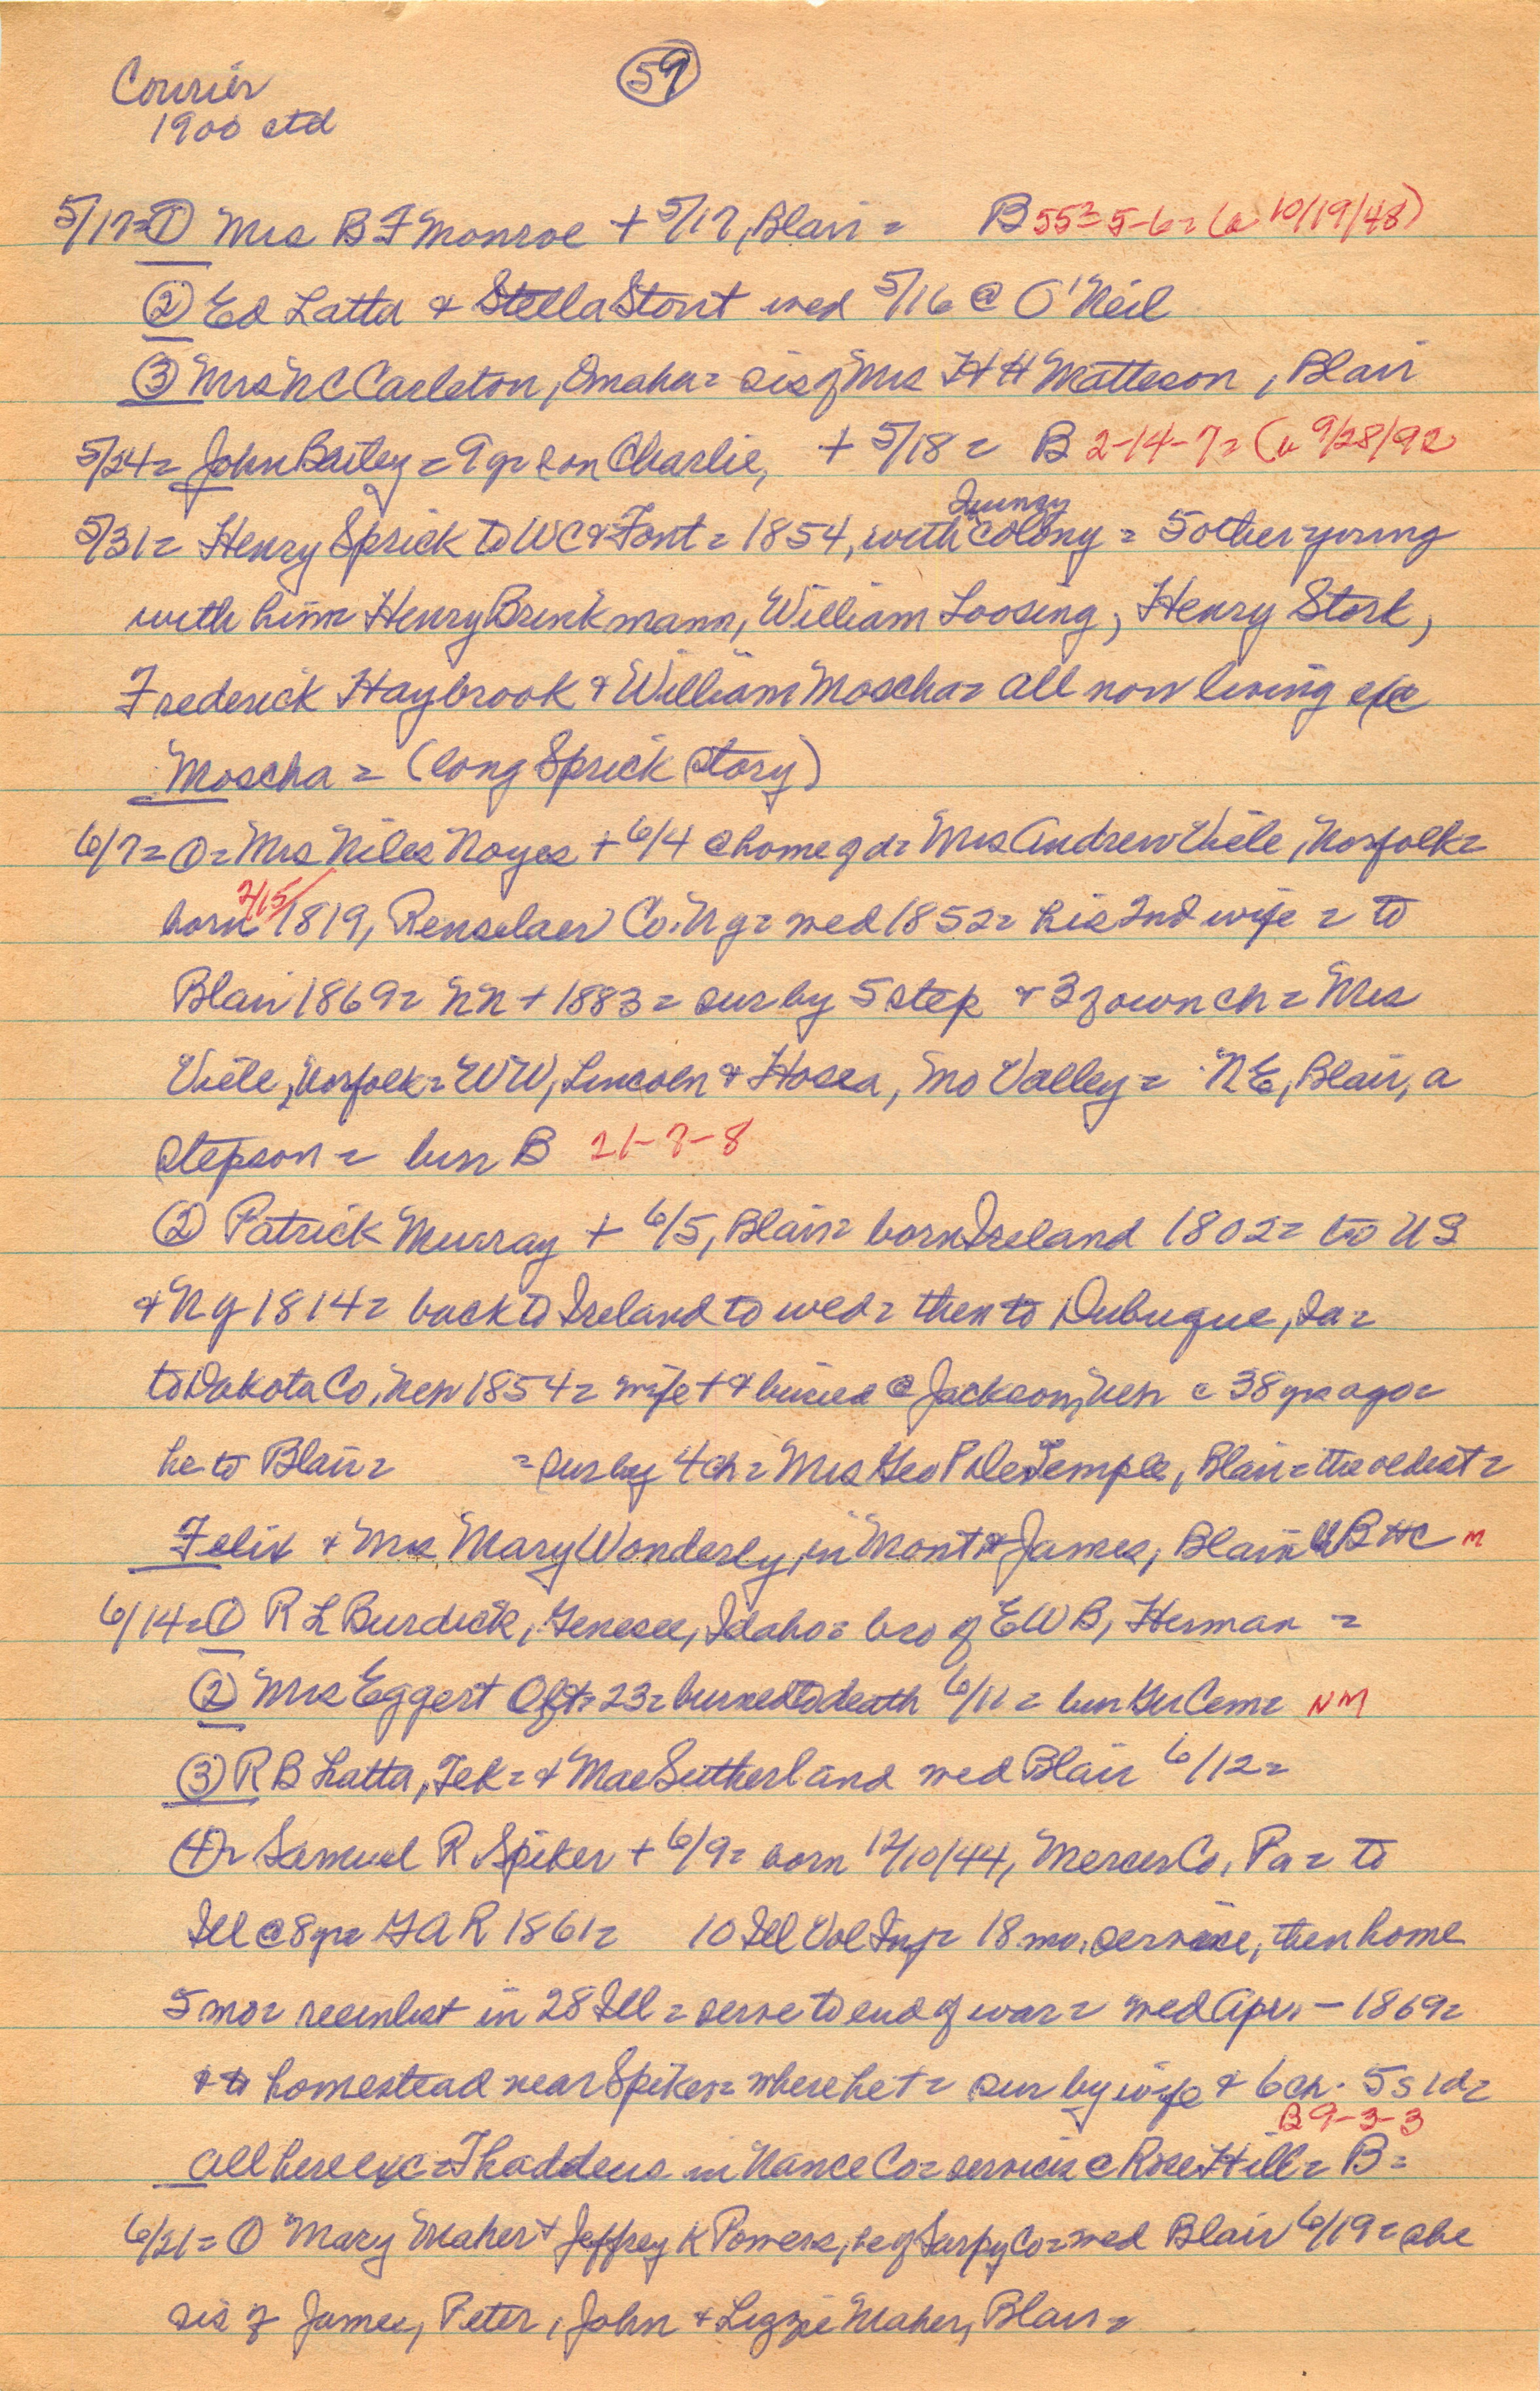 Courier
59
1900 ctd
5/17= ① Mrs B F Monroe + 5/17, Blair = B 55²-5-6= (a 10/19/48)
② Ed Latta & Stella Stont wed 5/16 @ O'Neil
③ Mrs N C Carleton, Omaha = sis of Mrs H H Matteson, Blair
5/24= John Bailey = 9 yr son Charlie, + 5/18 = B 2-14-7= (a 9/28/92
Quincy
5/31= Henry Sprick to WC & Font = 1854, with colony = 5 other young
with him= Henry Brinkmann, William Loosing, Henry Stork,
Frederick Haybrook & William Moscha= all now living exc
Moscha = (long Sprick story)
6/7= ①= Mrs Niles Noyes + 6/4 @ home of d= Mrs Andrew Viele, Norfolk=
born 2/15/ 1819, Renselaer Co. N Y= wed 1852= his 2nd wife = to
Blair 1869= NN + 1883= sur by 5 step & 3 of own ch = Mrs
Viele, Norfolk= WW, Lincoln & Hosea, Mo Valley= NE, Blair, a
stepson = bur B 21-7-8
② Patrick Murray + 6/5, Blair= born Ireland 1802= to US
& N Y 1814= back to Ireland to wed= then to Dubuque, Ia=
to Dakota Co, Neb 1854= wife + & buried @ Jackson, Neb c 38 yrs ago=
he to Blair= = sur by 4 ch = Mrs Geo P DeTemple, Blair= the oldest=
Felix & Mrs Mary Wonderly, in Mont & James, Blair B HC M
6/14= ① R L Burdick, Genesee, Idaho= bro of E W B, Herman =
② Mrs Eggert Oft= 23= burned to death 6/11= bur Ger Cem= NM
③ R B Latta, Tek= & Mae Sutherland wed Blair 6/12=
④= Samuel R Spiker + 6/9= born 12/10/44, Mercer Co, Pa= to
Ill @ 8 yr= GAR 1861= 10 Ill Vol Inf= 18 mo. service, then home
5 mo= reenlist in 28 Ill = serve to end of war= wed Apr. - 1869=
& to homestead near Spiker= where he + = sur by wife & 6 ch. 5 s 1 d=
B 9-3-3
all here exc= Thaddeus in Nance Co= services @ Rose Hill= B=
6/21= ① Mary Maher & Jeffrey K Powers, he of Sarpy Co= wed Blair 6/19= she
sis of James, Peter, John & Lizzie Maher, Blair=